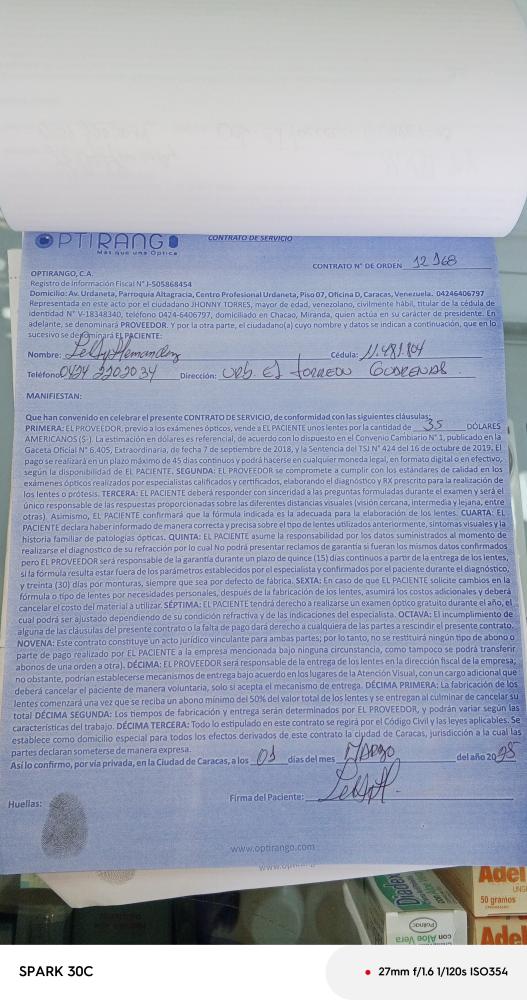 OPTIRANGO
Más que una Óptica
CONTRATO DE SERVICIO
CONTRATO N° DE ORDEN 12168
OPTIRANGO, C.A.
Registro de Información Fiscal N° J-505868454
Domicilio: Av. Urdaneta, Parroquia Altagracia, Centro Profesional Urdaneta, Piso 07, Oficina D, Caracas, Venezuela. 04246406797
Representada en este acto por el ciudadano JHONNY TORRES, mayor de edad, venezolano, civilmente hábil, titular de la cédula de
identidad N° V-18348340, teléfono 0424-6406797, domiciliado en Chacao, Miranda, quien actúa en su carácter de presidente. En
adelante, se denominará PROVEEDOR. Y por la otra parte, el ciudadano(a) cuyo nombre y datos se indican a continuación, que en lo
sucesivo se denominará EL PACIENTE:
Nombre: Hernandez Cédula: 11.481.804
Teléfono 0424 2202034 Dirección: Urb. El torreon Guarenas.
MANIFIESTAN:
Que han convenido en celebrar el presente CONTRATO DE SERVICIO, de conformidad con las siguientes cláusulas:
PRIMERA: EL PROVEEDOR, previo a los exámenes ópticos, vende a EL PACIENTE unos lentes por la cantidad de 35 DÓLARES
AMERICANOS ($-). La estimación en dólares es referencial, de acuerdo con lo dispuesto en el Convenio Cambiario N° 1, publicado en la
Gaceta Oficial N° 6.405, Extraordinaria, de fecha 7 de septiembre de 2018, y la Sentencia del TSJ N° 424 del 16 de octubre de 2019. El
pago se realizará en un plazo máximo de 45 días continuos y podrá hacerse en cualquier moneda legal, en formato digital o en efectivo,
según la disponibilidad de EL PACIENTE. SEGUNDA: EL PROVEEDOR se compromete a cumplir con los estándares de calidad en los
exámenes ópticos realizados por especialistas calificados y certificados, elaborando el diagnóstico y RX prescrito para la realización de
los lentes o prótesis. TERCERA: EL PACIENTE deberá responder con sinceridad a las preguntas formuladas durante el examen y será el
único responsable de las respuestas proporcionadas sobre las diferentes distancias visuales (visión cercana, intermedia y lejana, entre
otras). Asimismo, EL PACIENTE confirmará que la fórmula indicada es la adecuada para la elaboración de los lentes. CUARTA: EL
PACIENTE declara haber informado de manera correcta y precisa sobre el tipo de lentes utilizados anteriormente, síntomas visuales y la
historia familiar de patologías ópticas. QUINTA: EL PACIENTE asume la responsabilidad por los datos suministrados al momento de
realizarse el diagnostico de su refracción por lo cual No podrá presentar reclamos de garantía si fueran los mismos datos confirmados
pero EL PROVEEDOR será responsable de la garantía durante un plazo de quince (15) días continuos a partir de la entrega de los lentes,
si la fórmula resulta estar fuera de los parámetros establecidos por el especialista y confirmados por el paciente durante el diagnóstico,
y treinta (30) días por monturas, siempre que sea por defecto de fábrica. SEXTA: En caso de que EL PACIENTE solicite cambios en la
fórmula o tipo de lentes por necesidades personales, después de la fabricación de los lentes, asumirá los costos adicionales y deberá
cancelar el costo del material a utilizar. SÉPTIMA: EL PACIENTE tendrá derecho a realizarse un examen óptico gratuito durante el año, el
cual podrá ser ajustado dependiendo de su condición refractiva y de las indicaciones del especialista. OCTAVA: El incumplimiento de
alguna de las cláusulas del presente contrato o la falta de pago dará derecho a cualquiera de las partes a rescindir el presente contrato.
NOVENA: Este contrato constituye un acto jurídico vinculante para ambas partes; por lo tanto, no se restituirá ningún tipo de abono o
parte de pago realizado por EL PACIENTE a la empresa mencionada bajo ninguna circunstancia, como tampoco se podrá transferir
abonos de una orden a otra). DÉCIMA: EL PROVEEDOR será responsable de la entrega de los lentes en la dirección fiscal de la empresa;
no obstante, podrían establecerse mecanismos de entrega bajo acuerdo en los lugares de la Atención Visual, con un cargo adicional que
deberá cancelar el paciente de manera voluntaria, solo si acepta el mecanismo de entrega. DÉCIMA PRIMERA: La fabricación de los
lentes comenzará una vez que se reciba un abono mínimo del 50% del valor total de los lentes y se entregan al culminar de cancelar su
total DÉCIMA SEGUNDA: Los tiempos de fabricación y entrega serán determinados por EL PROVEEDOR, y podrán variar según las
características del trabajo. DÉCIMA TERCERA: Todo lo estipulado en este contrato se regirá por el Código Civil y las leyes aplicables. Se
establece como domicilio especial para todos los efectos derivados de este contrato la ciudad de Caracas, jurisdicción a la cual las
partes declaran someterse de manera expresa.
Así lo confirmo, por vía privada, en la Ciudad de Caracas, a los 01 días del mes Marzo del año 2025
Firma del Paciente:
Huellas:
www.optirango.com
Adel
UNG
50 gramos
con Aloe Vera
Adel
SPARK 30C
27mm f/1.6 1/120s ISO354